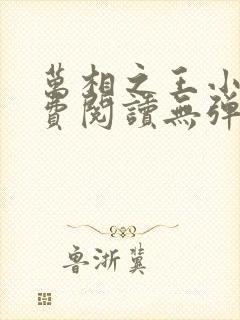 萬相之王小
費閱讀無彈
魯浙冀